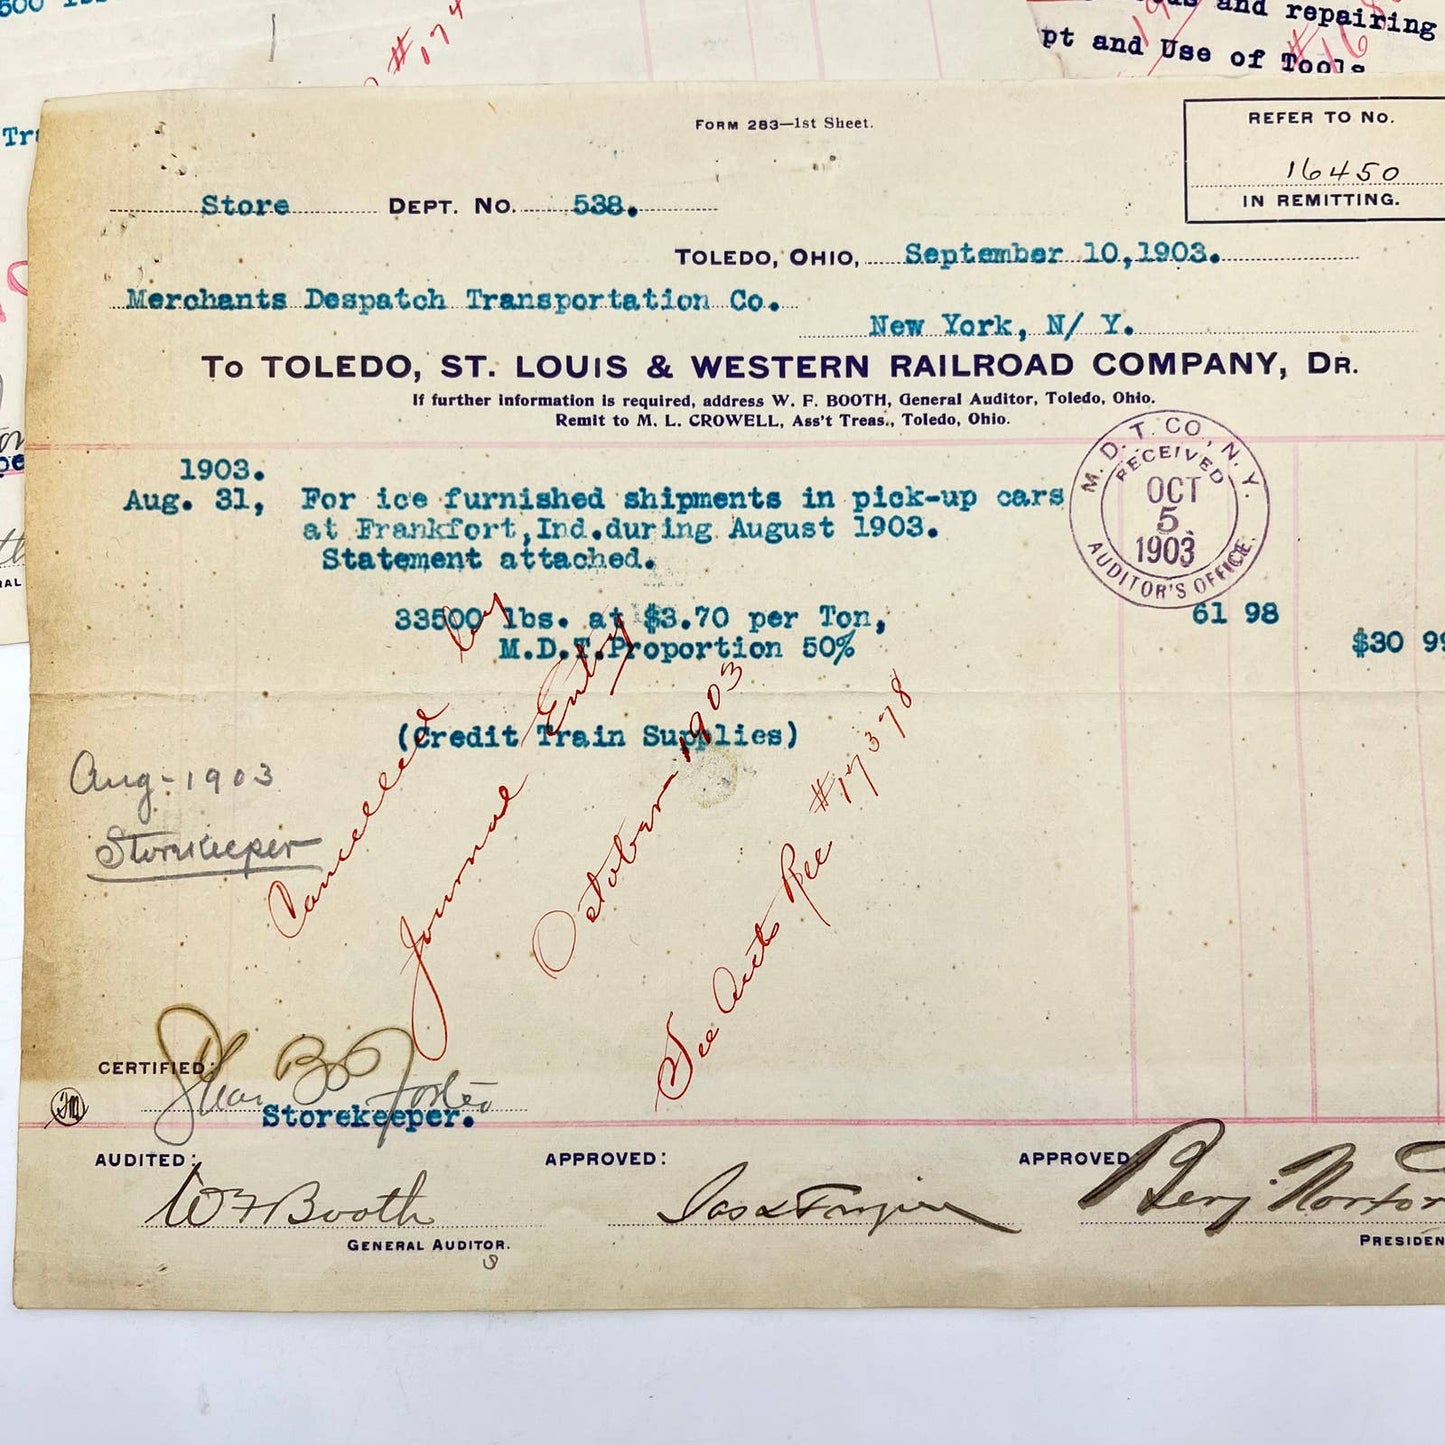 and repairing
pt and Use of Tools
Form 283—1st Sheet.
REFER TO No.
16450
IN REMITTING.
Store DEPT. No. 538.
TOLEDO, OHIO, September 10,1903.
Merchants Despatch Transportation Co.
New York, N/ Y.
To TOLEDO, ST. LOUIS & WESTERN RAILROAD COMPANY, DR.
If further information is required, address W. F. BOOTH, General Auditor, Toledo, Ohio.
Remit to M. L. CROWELL, Ass't Treas., Toledo, Ohio.
M. D. T. CO., N. Y.
RECEIVED
OCT
5
1903
AUDITOR'S OFFICE.
1903.
Aug. 31, For ice furnished shipments in pick-up cars
at Frankfort,Ind.during August 1903.
Statement attached.
33500 lbs. at $3.70 per Ton, 61 98
M.D.T.Proportion 50% $30 99
(Credit Train Supplies)
Aug-1903
Storekeeper
Cancelled by
Journal Entry
October 1903
See Aucts Rec #17378
CERTIFIED:
Foster
Storekeeper.
AUDITED:
W F Booth
GENERAL AUDITOR.
APPROVED:
APPROVED
Benj. Norton
PRESIDEN